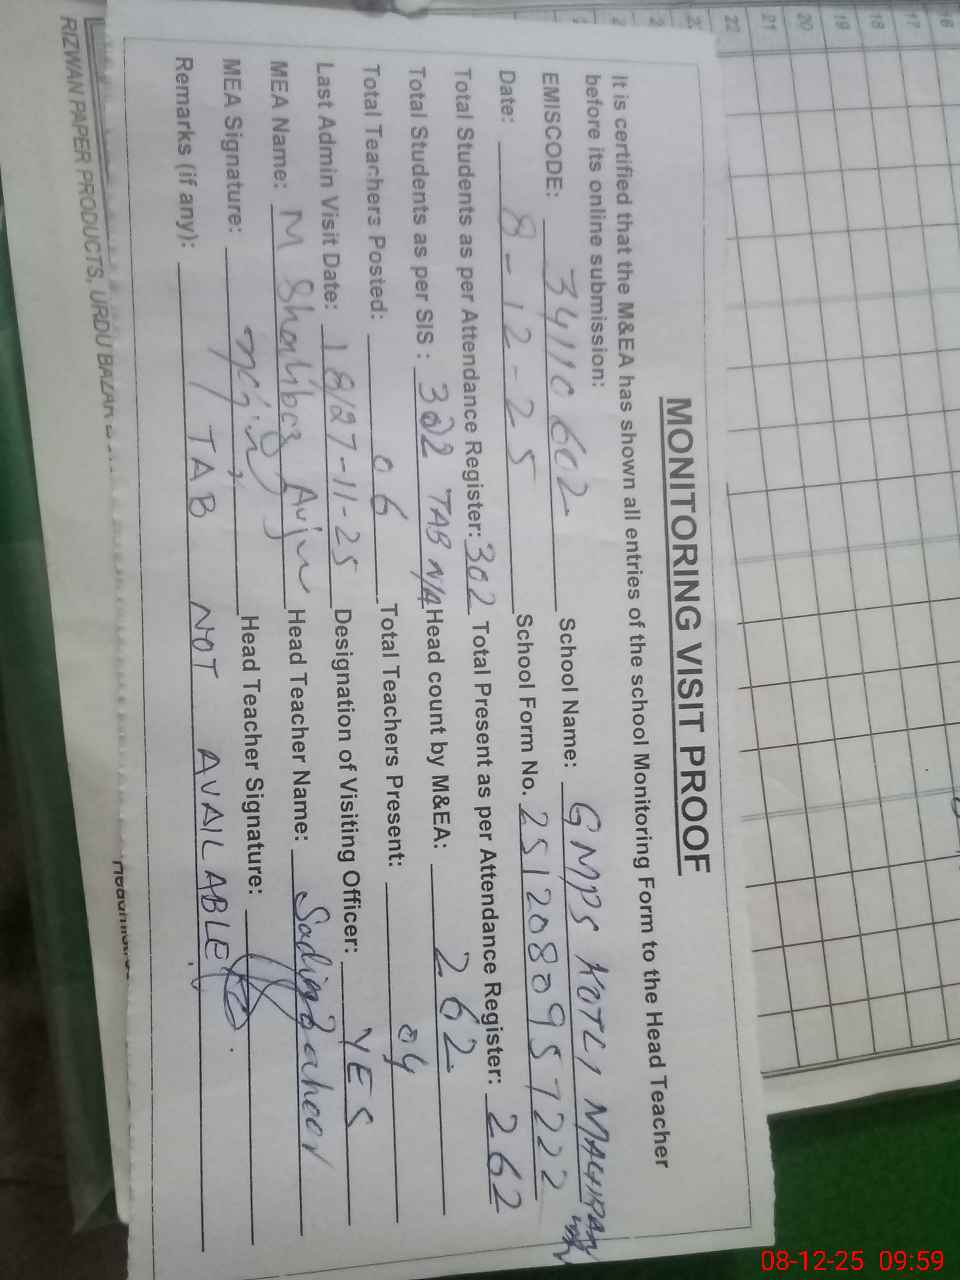 MONITORING VISIT PROOF
It is certified that the M&EA has shown all entries of the school Monitoring Form to the Head Teacher
before its online submission:
EMISCODE: 34110602 School Name: GMPS KOTLI
Date: 8-12-25 School Form No. 251208095722 2
Total Students as per Attendance Register: 302 Total Present as per Attendance Register: 262
Total Students as per SIS : 302 TAB N/A Head count by M&EA: 262
Total Teachers Posted: 06 Total Teachers Present: 04
Last Admin Visit Date: 18/27-11-25 Designation of Visiting Officer: YES
MEA Name: M Shahbaz Anjum Head Teacher Name:
MEA Signature: Head Teacher Signature:
Remarks (if any): TAB NOT AVAILABLE
RIZWAN PAPER PRODUCTS, URDU BAZAR
16
17
18
19
20
21
22
08-12-25 09:59